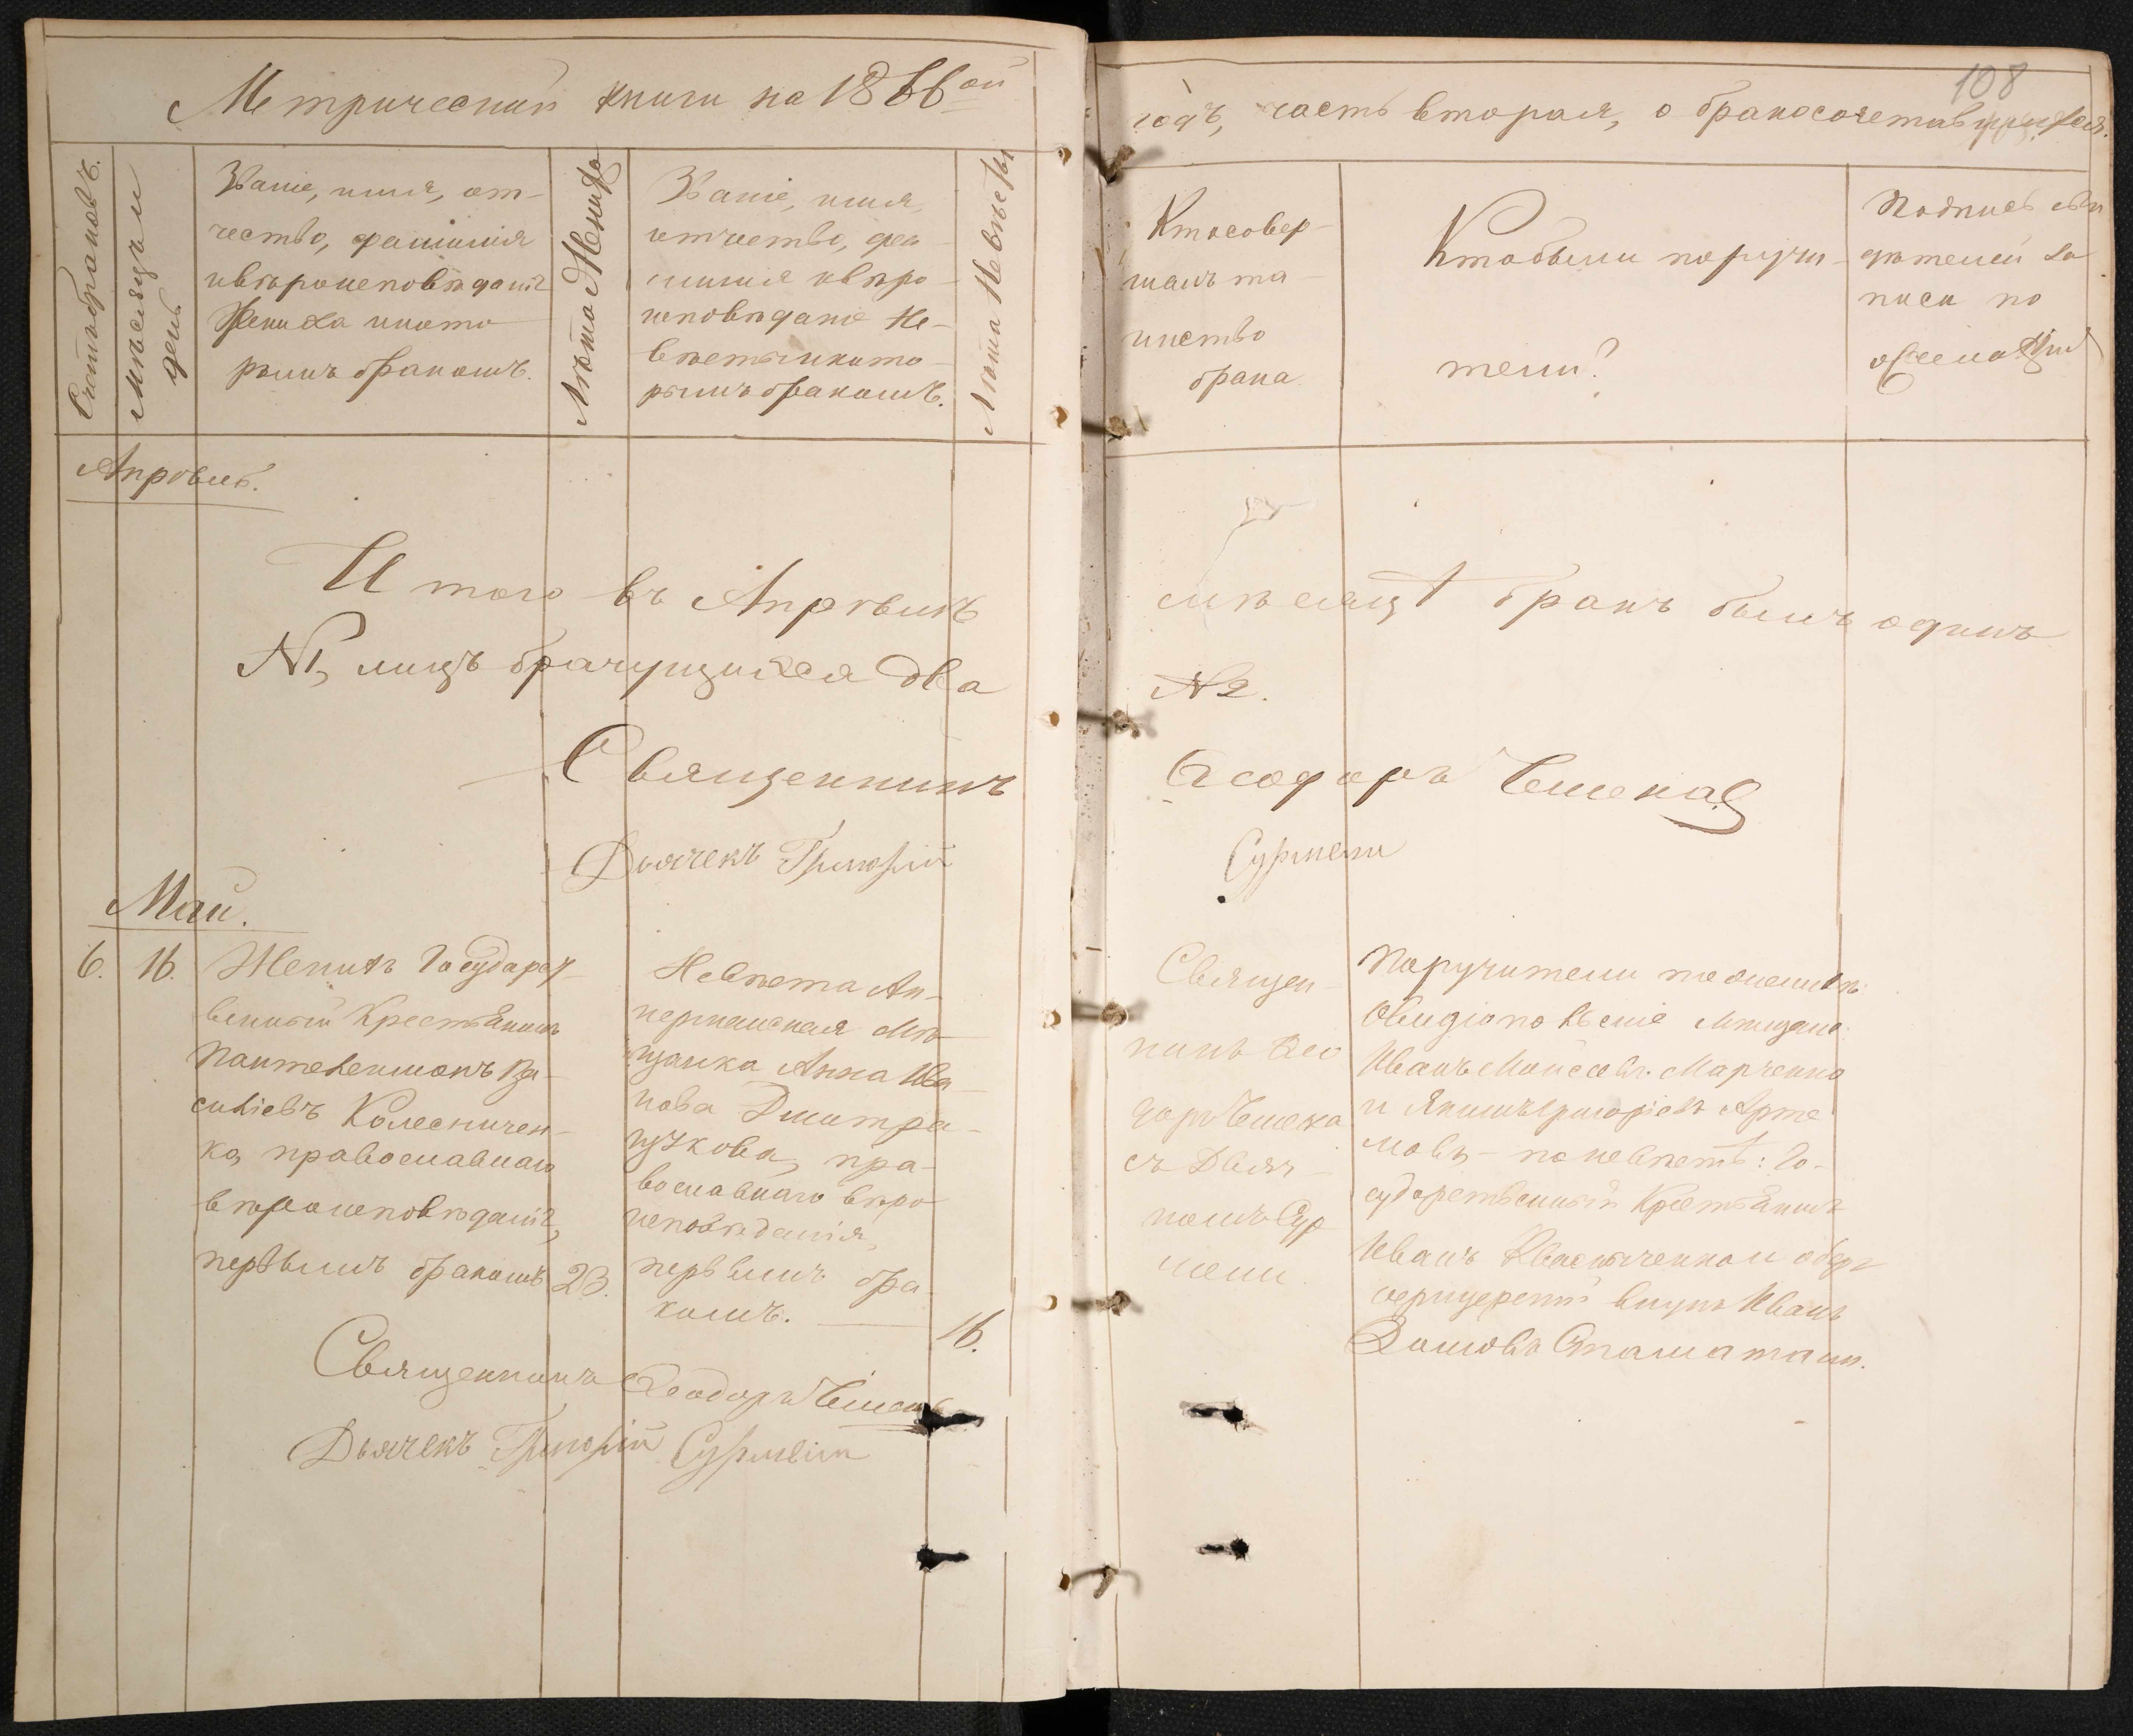 Метрической книги на 1866ой
годъ, часть вторая, о бракосочетавшихся.
108
Счетъ браковъ.
Мѣсяцъ и
день
Званіе, имя, от-
чество, фамилія
и вѣроисповѣданіе
Жениха и кото-
рымъ бракомъ.
Лѣта Жениха
Званіе, имя,
отчество, фа-
милія и вѣро-
исповѣданіе Не-
вѣсты и кото-
рымъ бракомъ.
Лѣта Невѣсты
Кто совер-
шалъ та-
инство
брака.
Кто были поручи-
тели?
Подпись сви
дѣтелей за
писи по
Апрѣль.
Итого въ Апрѣлѣ
мѣсяцѣ бракъ былъ одинъ
№1, лицъ брачущихся два
№2.
Священникъ
Ѳеодоръ Чемена
Дьячекъ Григорій
Сурмени
Май.
6.
16.
Женихъ Государст-
венный Крестьянинъ
Пантелеимонъ Ва-
силіевъ Колесничен-
ко, православнаго
вѣроисповѣданія,
первымъ бракомъ
23.
Невѣста Ак-
керманская Мѣ-
щанка Анна Ива-
нова Дмитра-
щукова, пра-
вославнаго вѣро
исповѣданія,
первымъ бра-
комъ.
16.
Священ-
никъ Ѳео
доръ Чемена
съ Дьяч-
комъ Сур
мени
Поручители по женихѣ:
Овидіопольскіе мѣщане:
Иванъ Моисеевъ Марченко
и Якимъ Григоріевъ Арте
мовъ – по невѣстѣ: Го-
сударственный Крестьянинъ
Иванъ и оберъ
внукъ Иванъ
Священникъ Ѳеодоръ Чемена
Дьячекъ Григорій Сурмени